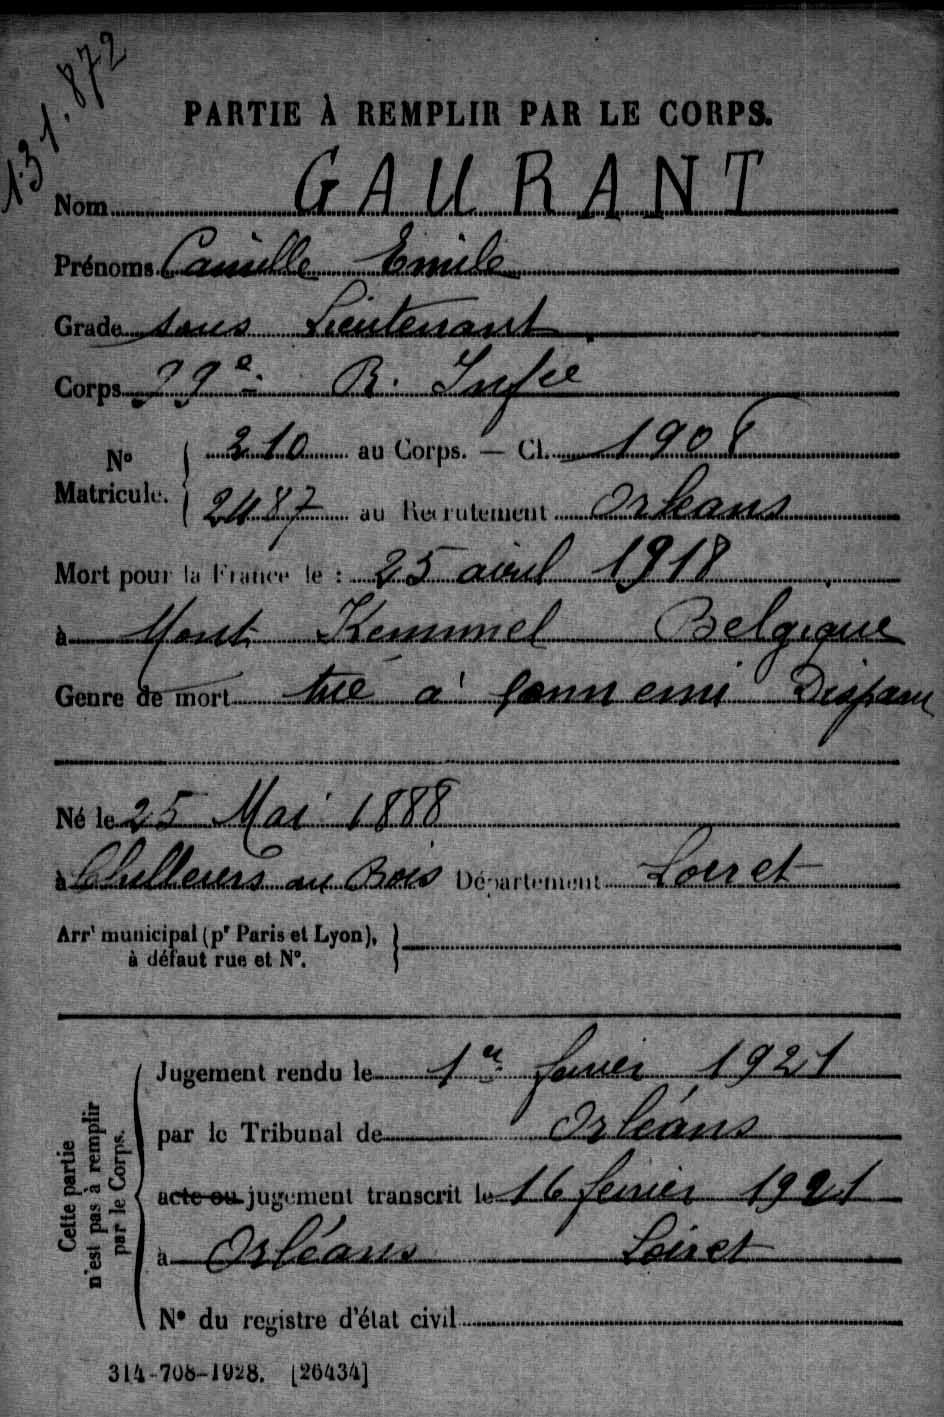 131.872
PARTIE À REMPLIR PAR LE CORPS.
Nom GAURANT
Prénoms Camille Emile
Grade sous Lieutenant
Corps 99e R. Infie
No Matricule. { 210 au Corps. — Cl. 1908
2487 au Recrutement Orleans
Mort pour la France le : 25 avril 1918
à Mont Kemmel Belgique
Genre de mort tué a' l'ennemi Disparu
Né le 25 Mai 1888
à Chilleurs au Bois Département Loiret
Arrt municipal (pr Paris et Lyon), }
à défaut rue et No.
Cette partie
n'est pas à remplir
par le Corps.
Jugement rendu le 1er fevrier 1921
par le Tribunal de Orléans
acte ou jugement transcrit le 16 fevrier 1921
à Orléans Loiret
No du registre d'état civil
314-708-1928. [26434]